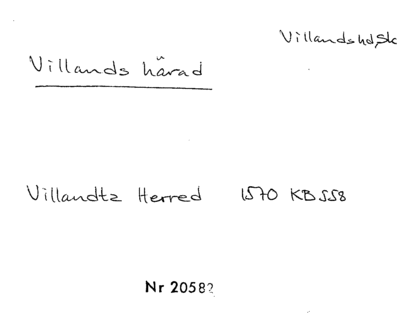 Villandshd, Sk
Villands härad
Villandtz Herred 1570 KB 558
Nr 2058?